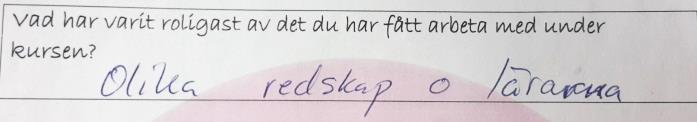 Vad har varit roligast av det du har fått arbeta med under
kursen?
Olika redskap o lärarna